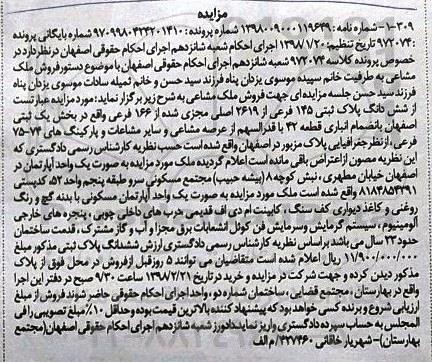 مزایده
۱-۳۰۹- شماره نامه: ۱۳۹۸۰۰۹۰۰۰۱۱۹۶۴۹ شماره پرونده: ۹۷۰۹۹۸۰۴۲۴۲۰۱۴۱۰ شماره بایگانی پرونده
: ۹۷۲۰۷۴ تاریخ تنظیم: ۱۳۹۸/۱/۲۰ اجرای احکام شعبه شانزدهم اجرای احکام حقوقی اصفهان درنظر دارد در
خصوص پرونده کلاسه ۹۷۲۰۷۴ شعبه شانزدهم اجرای احکام حقوقی اصفهان با موضوع دستور فروش ملک
مشاعی به طرفیت خانم سپیده موسوی یزدان پناه فرزند سید حسن و خانم ثمیله سادات موسوی یزدان پناه
فرزند سید حسن جلسه مزایده ای جهت فروش ملک مشاعی به شرح زیر برگزار نماید: مورد مزایده عبارتست
از شش دانگ پلاک ثبتی ۱۴۵ فرعی از ۲۶۱۹ اصلی مجزی شده از ۱۶۶ فرعی واقع در بخش یک ثبتی
اصفهان بانضمام انباری قطعه ۴۲ با قدرالسهم از عرصه مشاعی و سایر مشاعات و پارکینگ های ۷۴-۷۵
فرعی، از نظر جغرافیایی پلاک مزبور در اصفهان واقع شده است حسب نظریه کارشناس رسمی دادگستری که
این نظریه مصون از اعتراض باقی مانده است اعلام گردیده ملک مورد مزایده به صورت یک واحد آپارتمان در
اصفهان خیابان مطهری، نبش کوچه ۸ (بیشه حبیب) مجتمع مسکونی سرو طبقه پنجم واحد ۵۲، کدپستی
۸۱۸۳۸۵۴۳۹۱ واقع شده است ملک مورد مزایده به صورت یک واحد آپارتمان مسکونی با بدنه گچ و رنگ
روغنی و کاغذ دیواری کف سنگ، کابینت ام دی اف قدیمی درب های داخلی چوبی، پنجره های خارجی
آلومینیوم، سیستم گرمایش وسرمایش فن کوئل انشعابات برق مجزا و آب و گاز مشترک، قدمت ساختمان
حدود ۲۳ سال می باشد براساس نظریه کارشناس رسمی دادگستری ارزش ششدانگ پلاک ثبتی مذکور مبلغ
۱۱/۹۰۰/۰۰۰/۰۰۰ ریال اعلام شده است متقاضیان می توانند ۵ روز قبل از فروش در محل فوق از پلاک
مذکور دیدن کرده و جهت شرکت در مزایده و خرید در تاریخ ۱۳۹۸/۲/۲۱ ساعت ۹/۳۰ صبح در دفتر این اجرا
واقع در بهارستان، مجتمع قضایی، ساختمان شماره دو، واحد اجرای احکام حقوقی حاضر شوند فروش از مبلغ
ارزیابی شروع و برنده کسی خواهد بود که پیشنهاد کننده بالاترین قیمت بوده و حداقل ۱۰٪ مبلغ تصویبی را فی
المجلس به حساب سپرده دادگستری واریز نماید. دادورز شعبه شانزدهم اجرای احکام حقوقی اصفهان (مجتمع
بهارستان)- شهریار خاقانی ۴۳۷۴۶۰/م الف